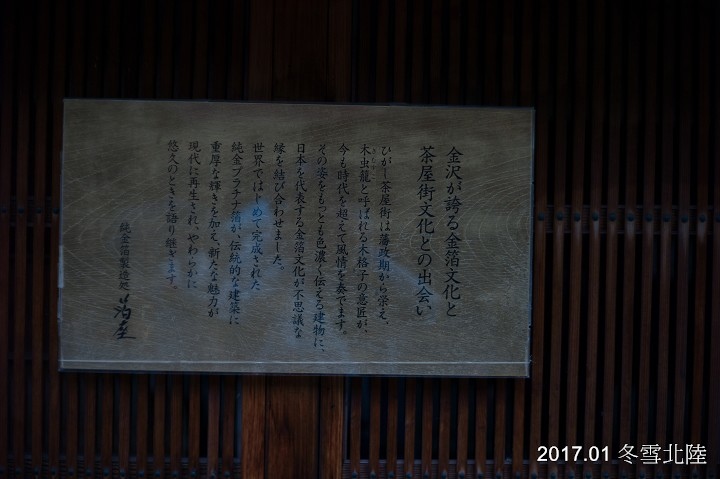 金沢が誇る金箔文化と
茶屋街文化との出会い
ひがし茶屋街は藩政期から栄え、
木虫籠と呼ばれる木格子の意匠が、
今も時代を超えて風情を奏でます。
その姿をもっとも色濃く伝える建物に、
日本を代表する金箔文化が不思議な
縁を結び合わせました。
世界ではじめて完成された
純金プラチナ箔が、伝統的な建築に
重厚な輝きを加え、新たな魅力が
現代に再生され、やわらかに
悠久のときを語り継ぎます。
純金箔製造処 箔座
2017.01 冬雪北陸